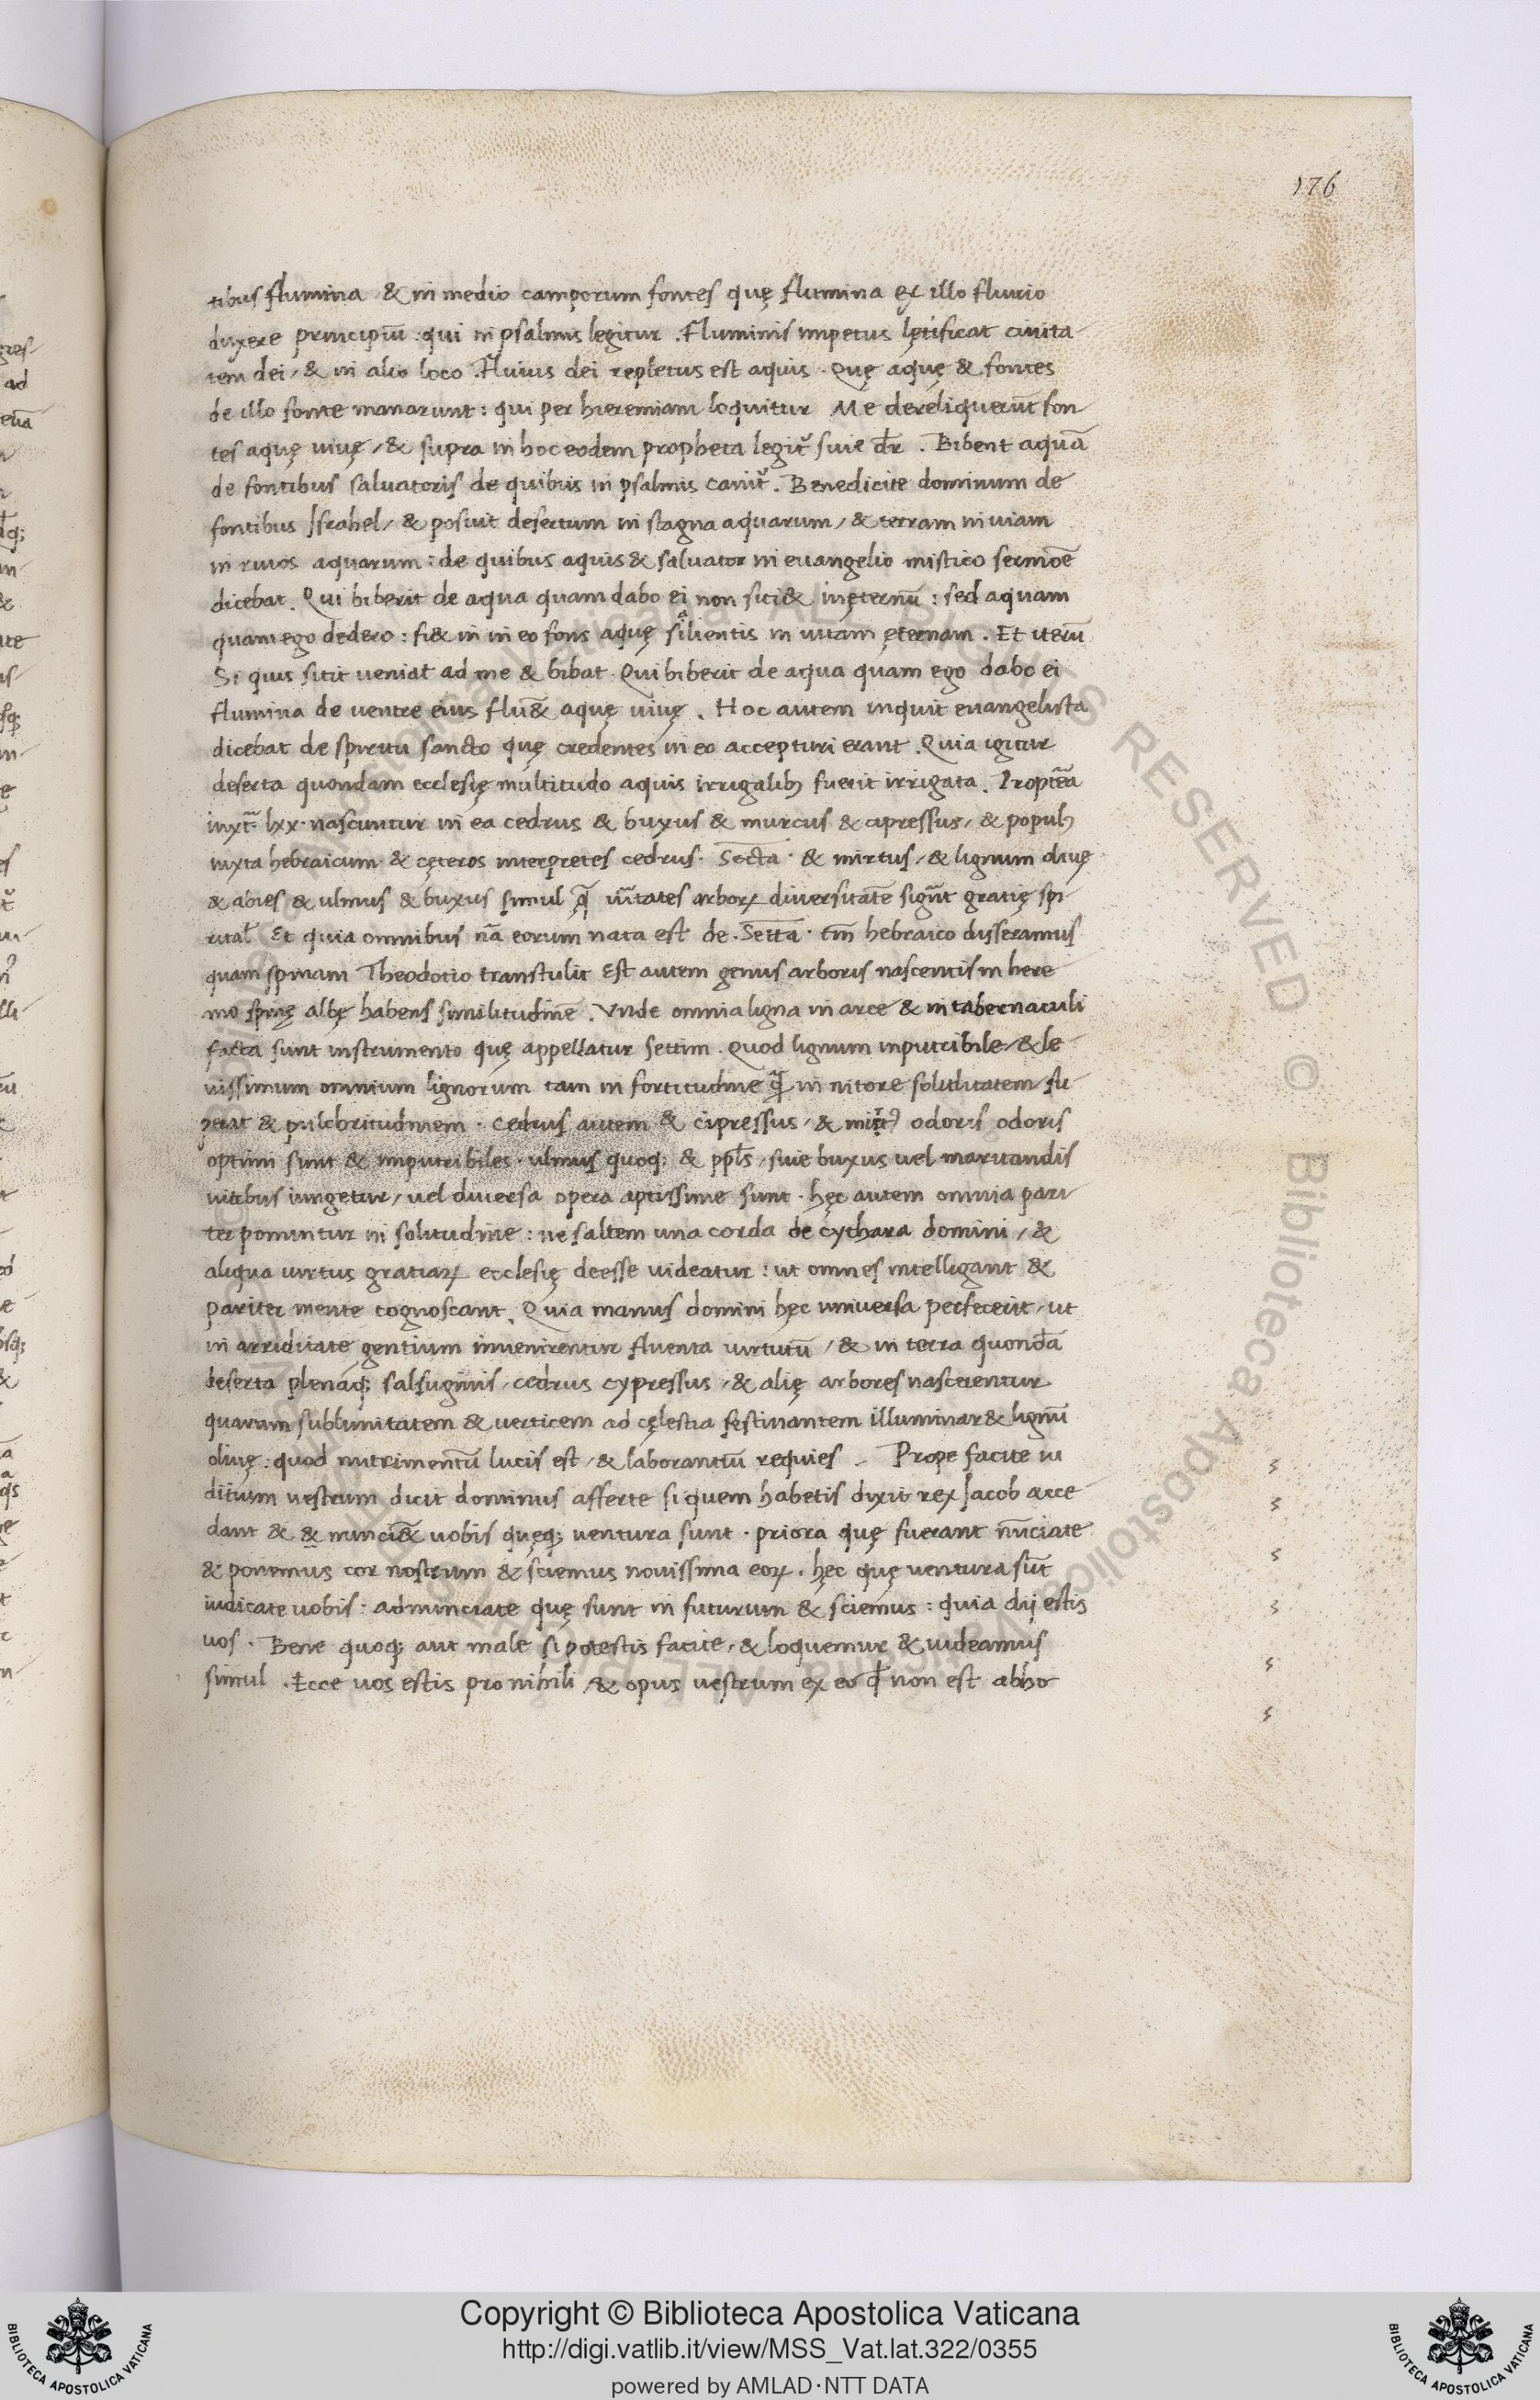 176
tibus flumina & in medio camporum fontes quę flumina ex illo fluuio
duxere principiū : qui in psalmis legitur . Fluminis impetus lętificat ciuita
tem dei / & in alio loco . Fluuius dei repletus est aquis . Quę aquę & fontes
de illo fonte manarunt : qui per hieremiam loquitur Me dereliquerūt fon
tes aquę uiuę / & supra in hoc eodem propheta legit᷑ siue dr̄ . Bibent aquā
de fontibus saluatoris de quibus in psalmis canit᷑ . Benedicite dominum de
fontibus Israhel / & posuit desertum in stagna aquarum / & terram in uiam
in riuos aquarum : de quibus aquis & saluator in euangelio mistico sermōe
dicebat . Qui biberit de aqua quam dabo ei non siti& in ęternū : sed aquam
quam ego dedero : fi& in in eo fons aquę salientis in uitam ęternam . Et iterū
Si quis sitit ueniat ad me & bibat . Qui biberit de aqua quam ego dabo ei
flumina de uentre eius flu& aquę uiuę . Hoc autem inquit euangelista
dicebat de spiritu sancto quę credentes in eo accepturi erant . Quia igitur
deserta quondam ecclesię multitudo aquis irrigalib; fuerit irrigata . Proptēa
iuxta lxx . nascuntur in ea cedrus & buxus & murcus & cipressus / & popul;
iuxta hebraicum & cęteros interpretes cedrus . Secta . & mirtus / & lignum oliuę
& abies & ulmus & buxus simul arborꝝ diuersitatē signt̄ gratię spi
rital̄ Et quia omnibus nā eorum nata est de . Setta . tm̄ hebraico disseramus
quam spinam Theodotio transtulit Est autem genus arboris nascentis in here
mo spinę albę habens similitudinē . Vnde omnia ligna in arce & in tabernaculi
facta sunt instrumento quę appellatur settim . Quod lignum inputribile / & le
uissimum omnium lignorum tam in fortitudine qꝫ in nitore soliditatem su
perat & pulchritudinem . Cedrus autem & cipressus / & mirt᷒ odoris odoris
optimi sunt & imputribiles . ulmus quoq; & ppl̄s / siue buxus uel maritandis
uitibus iungetur / uel diuersa opera aptissime sunt . hęc autem omnia pari
ter ponuntur in solitudine : ne saltem una corda de cythara domini / &
aliqua uirtus gratiarꝝ ecclesię deesse uideatur : ut omnes intelligant &
pariter mente cognoscant . Quia manus domini hęc uniuersa perfecerit / ut
in arriditate gentium inuenirentur fluenta uirtutū / & in terra quondā
deserta plenaq; salsuginis / cedrus cypressus / & alię arbores nascerentur
quarum sublimitatem & uerticem ad cęlestia festinantem illuminar& lignū
oliuę : quod nutrimentū lucis est / & laborantiū requies . Prope facite iu
ditium uestrum dicit dominus afferte si quem habetis dixit rex Jacob acce
dant & & nunci& uobis quęq; uentura sunt . priora quę fuerant nūciate
& ponemus cor nostrum & sciemus nouissima eorꝝ . hęc quę uentura sūt
iudicate uobis : adnunciate quę sunt in futurum & sciemus : quia dij estis
uos . Bene quoq; aut male si potestis facite / & loquemur & uideamus
simul . Ecce uos estis pro nihili / & opus uestrum ex eo qd̄ non est abho
Copyright © Biblioteca Apostolica Vaticana
http://digi.vatlib.it/view/MSS_Vat.lat.322/0355
powered by AMLAD·NTT DATA